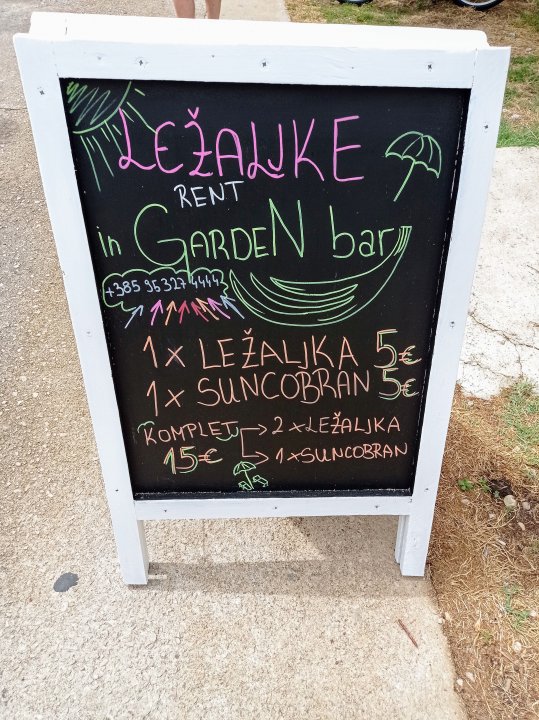 LEŽALJKE
RENT
in GARDEN bar
+385 95 327 4444
1x LEŽALJKA 5€
1x SUNCOBRAN 5€
KOMPLET → 2xLEŽALJKA
15€ → 1xSUNCOBRAN